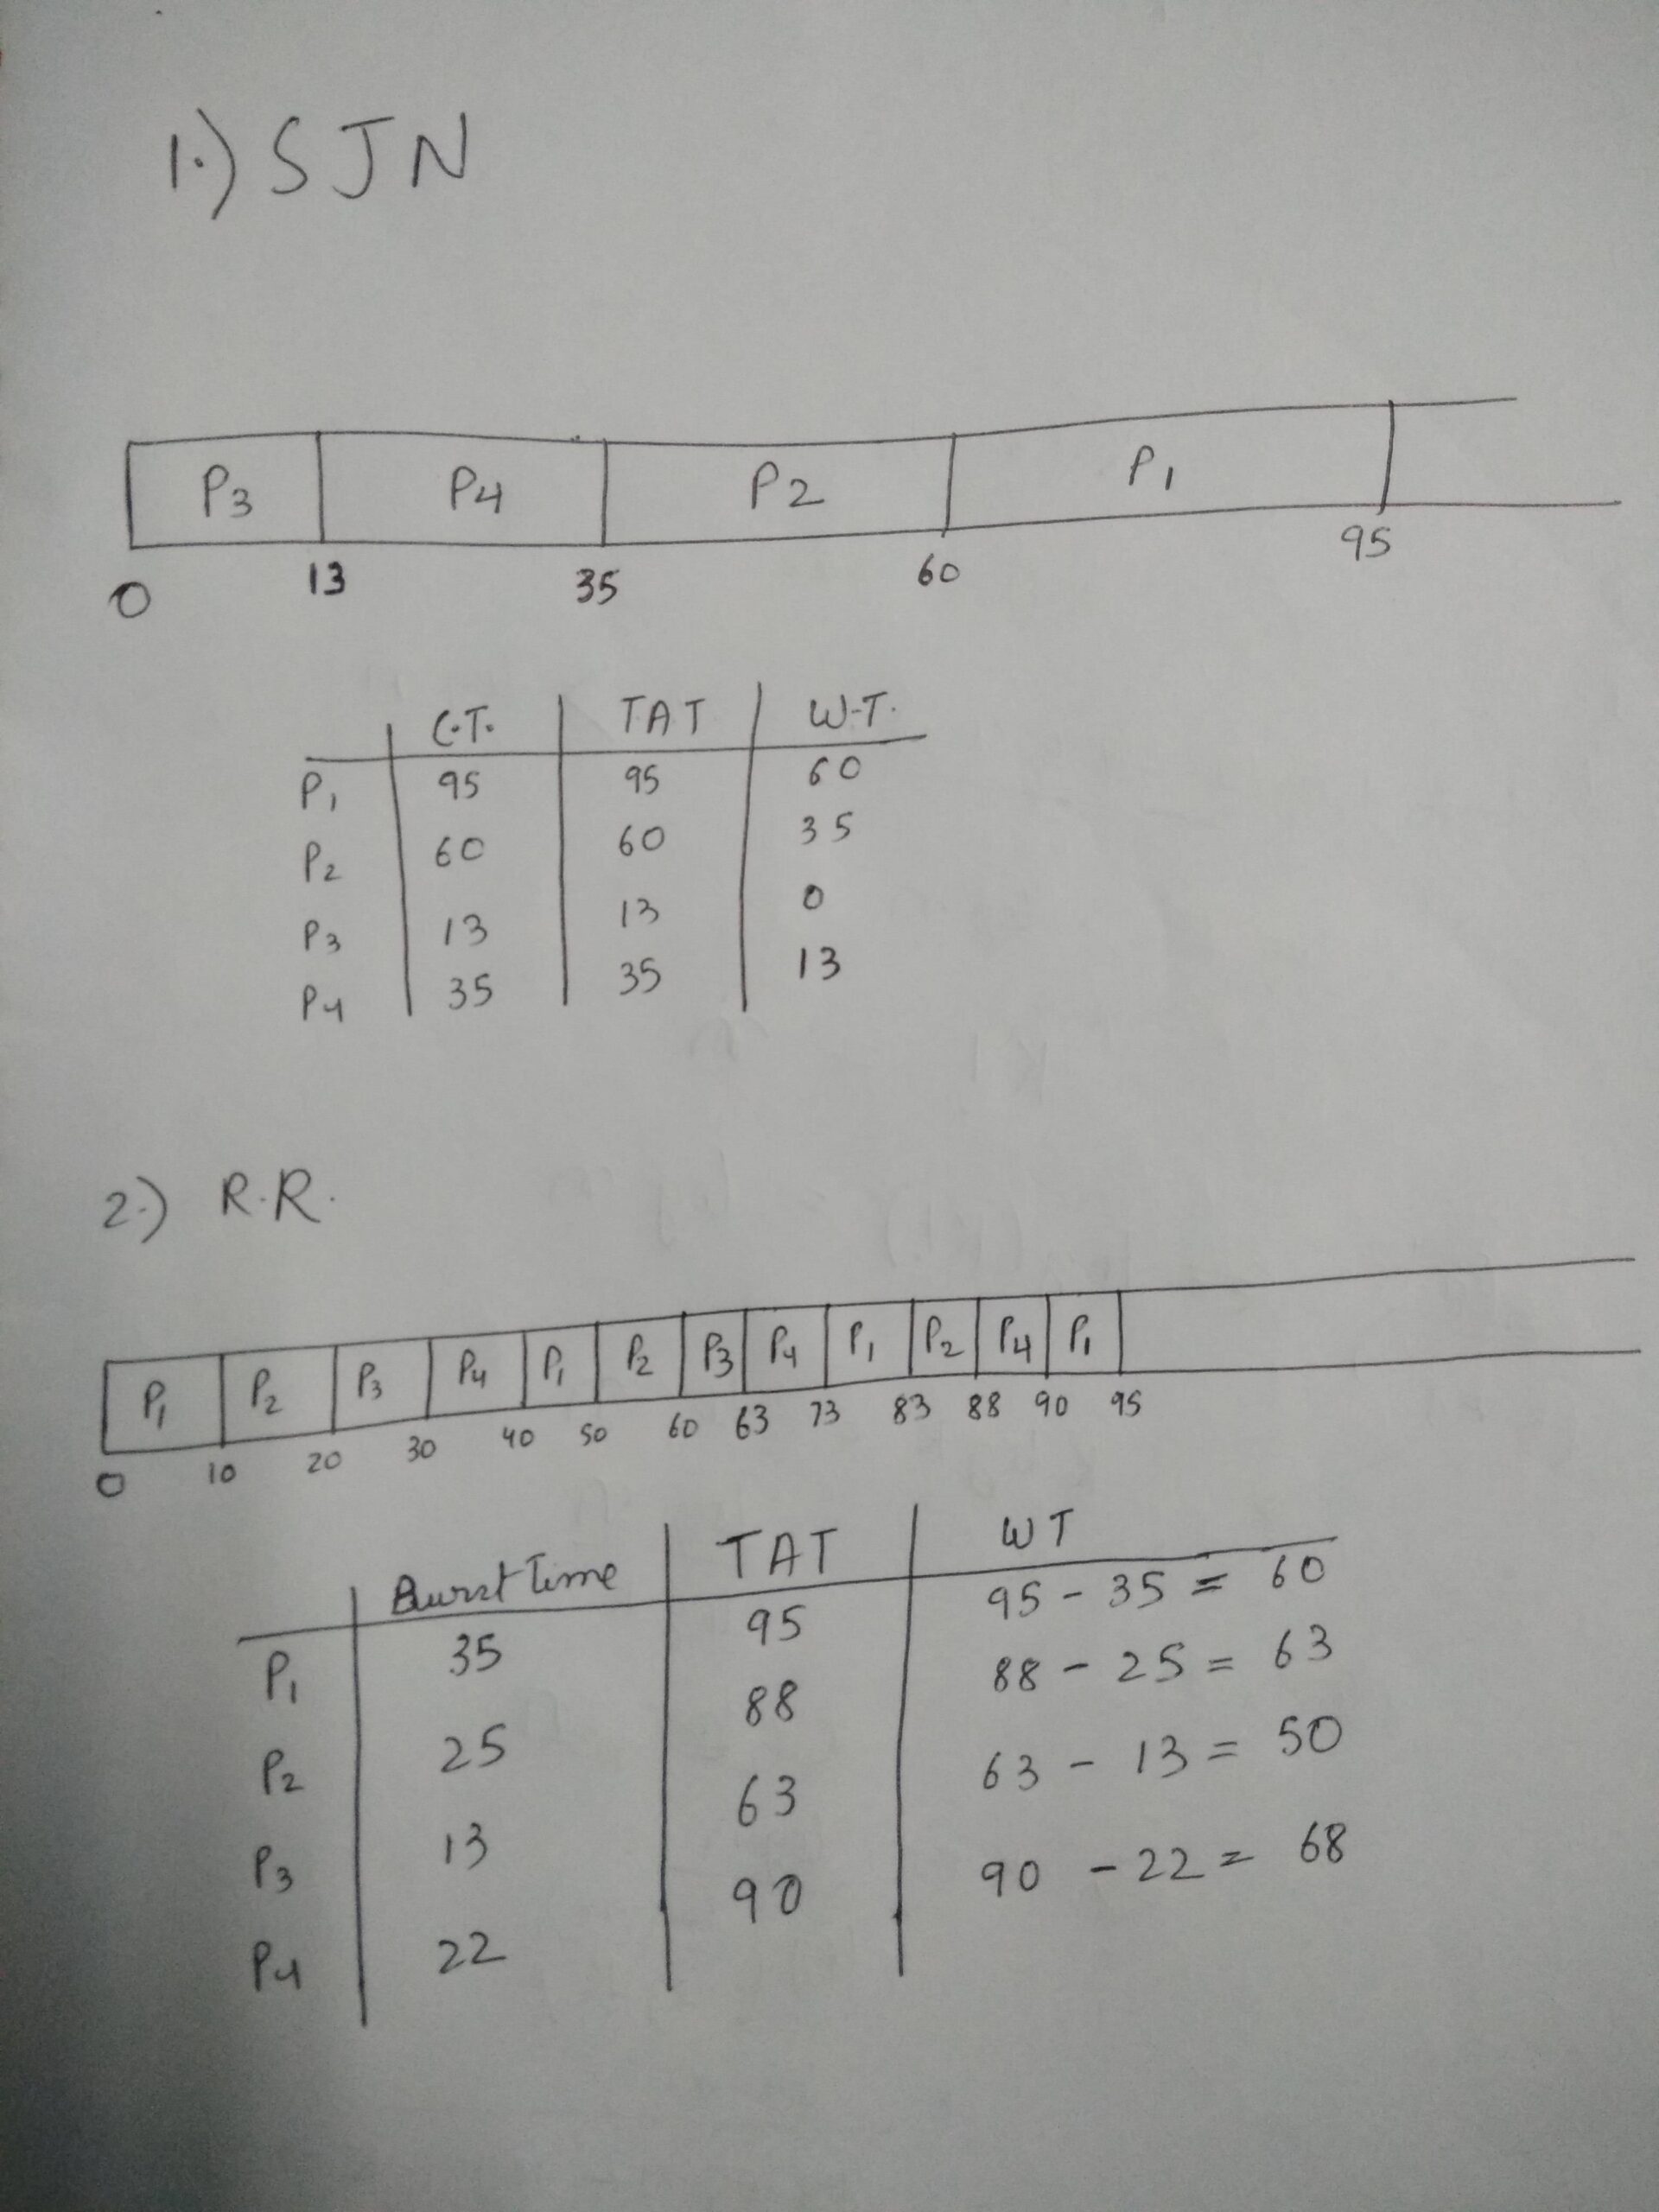 1.) SJN
P3 P4 P2 P1
0 13 35 60 95
C.T. TAT W.T.
P1 95 95 60
P2 60 60 35
P3 13 13 0
P4 35 35 13
2.) R.R.
P1 P2 P3 P4 P1 P2 P3 P4 P1 P2 P4 P1
0 10 20 30 40 50 60 63 73 83 88 90 95
Burst Time TAT WT
P1 35 95 95 - 35 = 60
P2 25 88 88 - 25 = 63
P3 13 63 63 - 13 = 50
P4 22 90 90 - 22 = 68